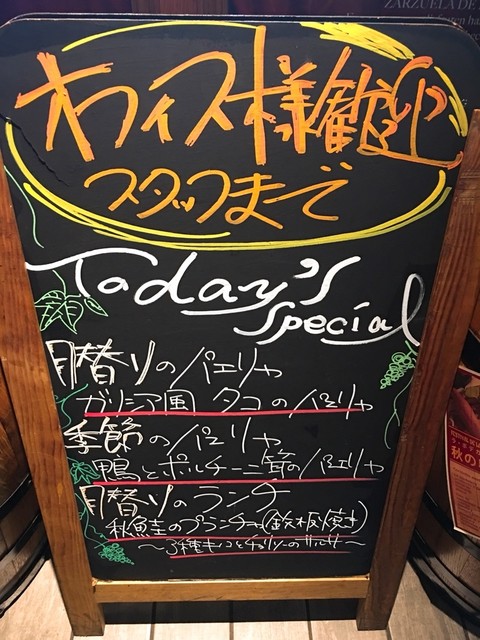 ZARZUELA DE
オフィス様歓迎
スタッフまで
Today's
Special
月替りのパエリャ
ガリシア風 タコのパエリャ
季節のパエリャ
鴨とポルチーニ茸のパエリャ
月替りのランチ
秋鮭のプランチャ(鉄板焼き)
〜3種キノコとチョリソーのサルサ〜
秋の